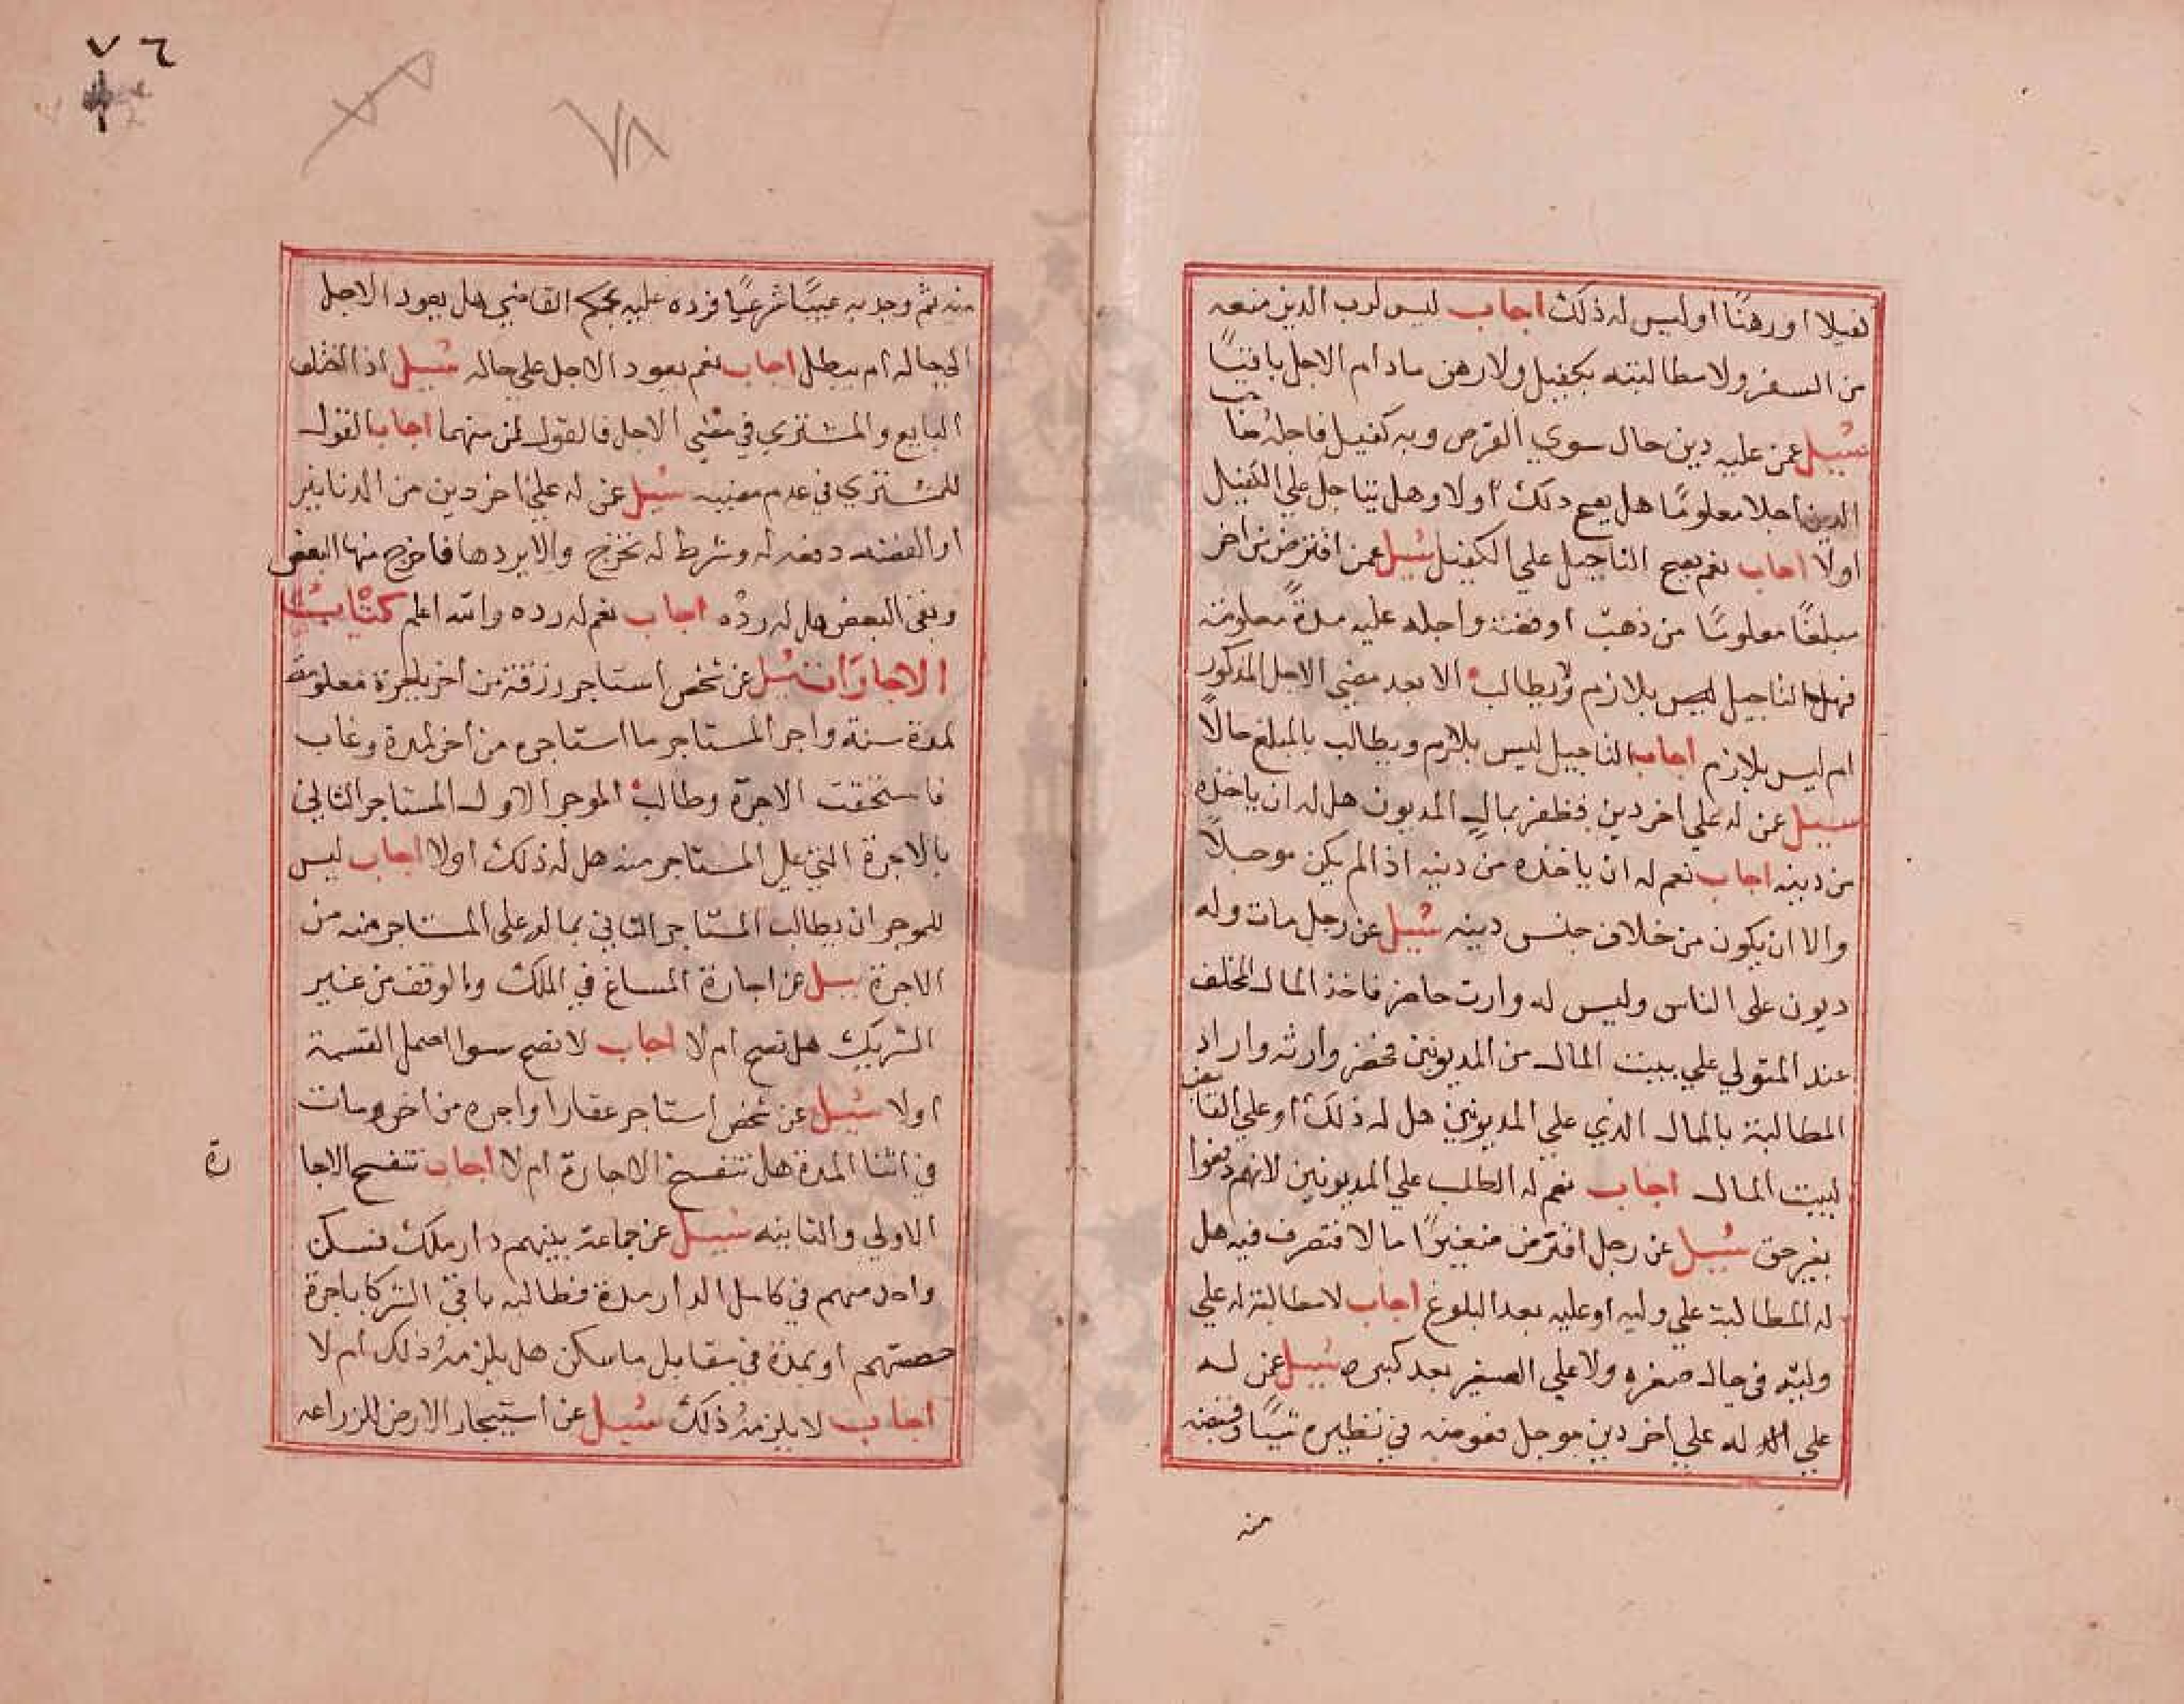 كفيلا او رهنًا او ليس له ذلك اجاب ليس لرب الدين منعه
من السفر ولا مطالبته بكفيل ولا رهن مادام الاجل باقيًا
سُيل عمن عليه دين حال سوي القرض وبه كفيل فاجله
الدين اجلا معلومًا هل يصح ذلك أولا وهل يتاجل علي الكفيل
اولا اجاب نعم يصح التاجيل علي الكفيل سُيل عمن اقترض من اخر
مبلغًا معلومًا من ذهب أو فضة واجله عليه مدةً معلومة
فهل التاجيل ليس بلازم ويطالب الا بعد مضي الاجل المذكور
ام ليس بلازم اجاب التاجيل ليس بلازم ويطالب بالمبلغ حالاً
سييل عمن له علي اخر دين فظفر بمال المديون هل له ان ياخذه
من دينه اجاب نعم له ان ياخذه من دينه اذا لم يكن موجلاً
والا ان يكون من خلاف جنس دينه سُيل عن رجل مات وله
ديون على الناس وليس له وارث حاضر فاخذ المال المخلف
عند المتولي علي بيت المال من المديونين فحضر وارثه واراد
المطالبة بالمال الذي علي المديونين هل له ذلك أو علي القابض
لبيت المال اجاب نعم له الطلب علي المديونين لانهم دفعوا
بغير حق سُيل عن رجل اقترض من صغيرًا مالا فتصرف فيه هل
له المطالبة علي وليه او عليه بعد البلوغ اجاب لا مطالبة له علي
وليّه في حال صغره ولا علي الصغير بعد كبره سُيل عمن له
علي له علي اخر دين موجل فعوضه في نظيره شيًا وقبضه
منه
٧٦
٧٨
منه ثم وجد به عيبًا شرعيًا فرده عليه بحكم القاضي هل يعود الاجل
الي حاله ام يبطل اجاب نعم يعود الاجل علي حاله سُيل اذا اختلف
البايع والمشتري في مضي الاجل فالقول لمن منهما اجاب القول
للمشتري في عدم مضيه سُيل عمن له علي اخر دين من الدنانير
او الفضة دفعه له وشرط له تخرج والا يردها فاخرج منها البعض
وبقى البعض هل له ردّه اجاب نعم له رده والله اعلم كتاب
الاجارات سُيل عن شخص استاجر رزقة من اخر باجرة معلومة
لمدة سنة واجر المستاجر ما استاجره من أخر لمدة وغاب
فاستحقت الاجرة وطالب الموجر الاول المستاجر الثاني
بالاجرة التي علي المستاجر منه هل له ذلك اولا اجاب ليس
للموجر ان يطالب المستاجر الثاني بماله على المستاجر منه من
الاجرة سيل عن اجارة المساغ في الملك والوقف من غير
الشريك هل تصح ام لا اجاب لا تصح سوا احتمل القسمة
اولا سُيل عن شخص استاجر عقارا واجره من اخر ومات
في اثنا المدة هل تنفسخ الاجارة ام لا اجاب تنفسح الاجا
رة
الاولي والثانيه سُيل عن جماعة بينهم دار ملك فسكن
واحد منهم في كامل الدار مدة فطالبه باقي الشركا باجرة
حصتهم او بمدة في مقابل ما سكن هل يلزمهُ ذلك ام لا
اجاب لا يلزمهُ ذلك سُيل عن استيجار الارض للزراعه